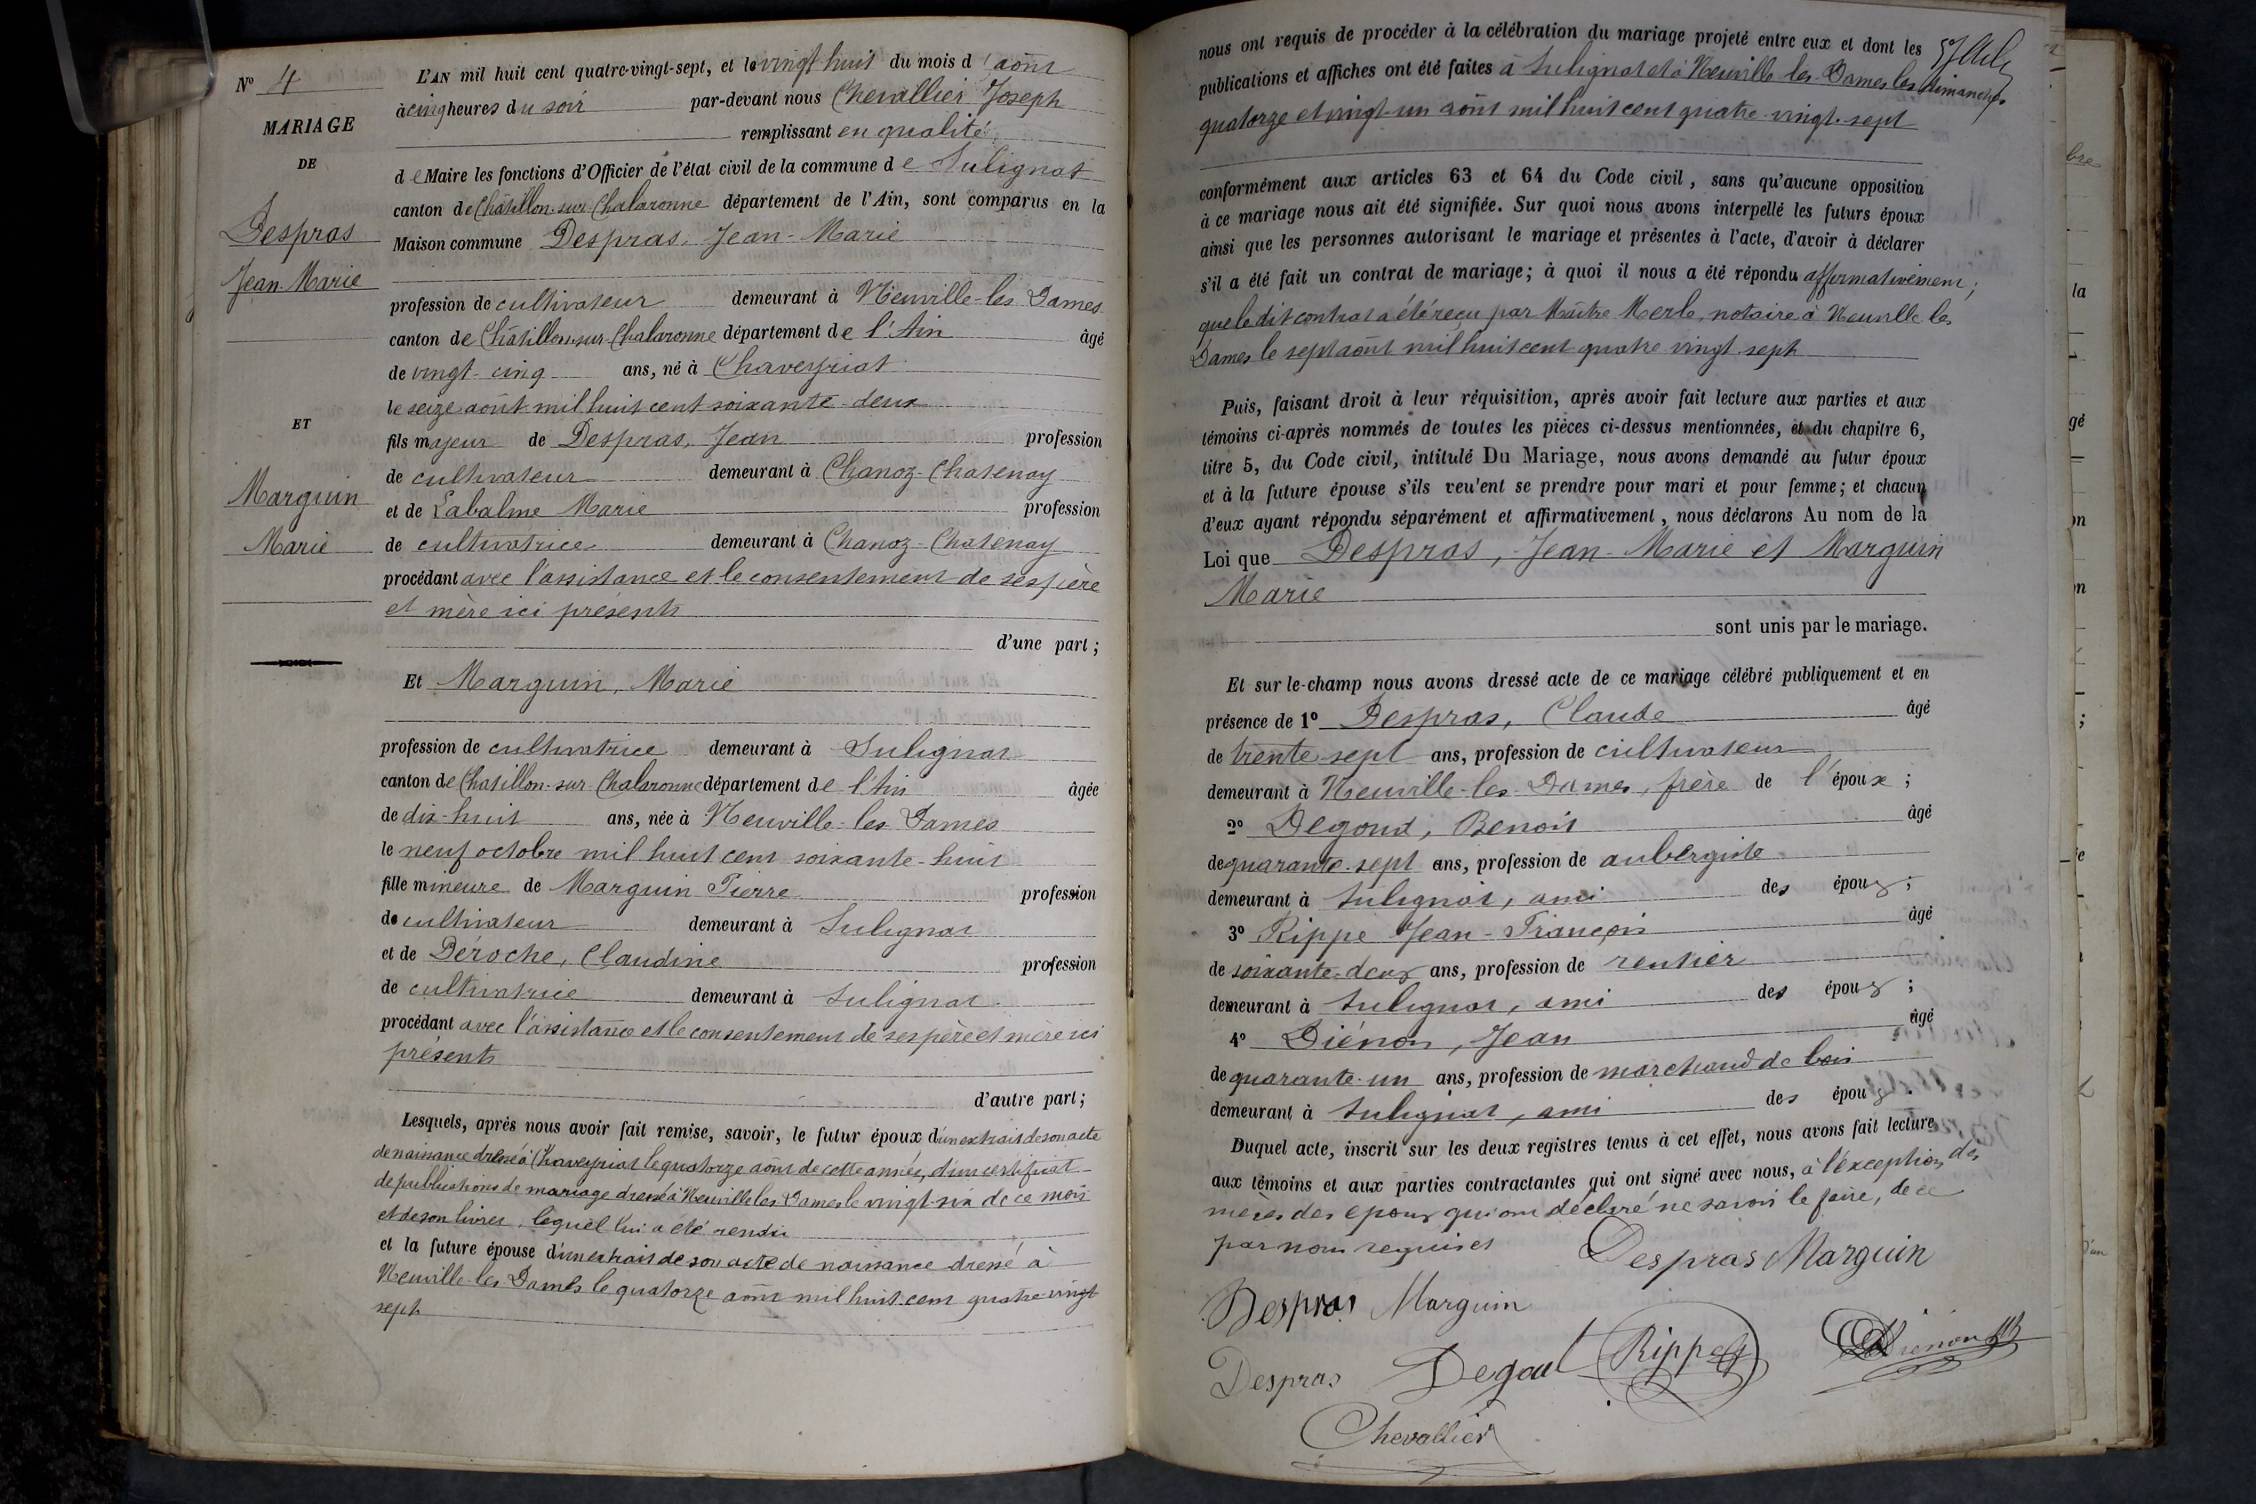 N° 4
MARIAGE
DE
Despras
Jean-Marie
ET
Marguin
Marie
L'AN mil huit cent quatre-vingt-sept, et le vingt huit du mois d'août
à cinq heures du soir par-devant nous Chevallier Joseph
remplissant en qualité
de Maire les fonctions d'Officier de l'état civil de la commune de Sulignat
canton de Châtillon-sur-Chalaronne département de l'Ain, sont comparus en la
Maison commune Despras, Jean-Marie
profession de cultivateur demeurant à Neuville-les Dames
canton de Châtillon-sur-Chalaronne département de l'Ain âgé
de vingt-cinq ans, né à Chaveyriat
le seize août mil huit cent soixante-deux
fils majeur de Despras, Jean profession
de cultivateur demeurant à Chanoz-Chatenay
et de Labalme Marie profession
de cultivatrice demeurant à Chanoz-Chatenay
procédant avec l'assistance et le consentement de ses père
et mère ici présents
d'une part ;
Et Marguin, Marie
profession de cultivatrice demeurant à Sulignat
canton de Chatillon-sur-Chalaronne département de l'Ain âgée
de dix-huit ans, née à Neuville-les Dames
le neuf octobre mil huit cent soixante-huit
fille mineure de Marguin Pierre profession
de cultivateur demeurant à Sulignat
et de Déroche, Claudine profession
de cultivatrice demeurant à Sulignat
procédant avec l'assistance et le consentement de ses père et mère ici
présents
d'autre part ;
Lesquels, après nous avoir fait remise, savoir, le futur époux d'un extrait de son acte
de naissance dressé à Chaveyriat le quatorze août de cette année, d'un certificat
de publications de mariage dressé à Neuville les Dames le vingt-six de ce mois
et de son livret, lequel lui a été rendu
et la future épouse d'un extrait de son acte de naissance dressé à
Neuville-les-Dames le quatorze août mil huit cent quatre-vingt
sept
nous ont requis de procéder à la célébration du mariage projeté entre eux et dont les
publications et affiches ont été faites à Sulignat et à Neuville les Dames les dimanches
quatorze et vingt-un août mil huit cent quatre-vingt-sept
conformément aux articles 63 et 64 du Code civil, sans qu'aucune opposition
à ce mariage nous ait été signifiée. Sur quoi nous avons interpellé les futurs époux
ainsi que les personnes autorisant le mariage et présentes à l'acte, d'avoir à déclarer
s'il a été fait un contrat de mariage ; à quoi il nous a été répondu affirmativement ;
que le dit contrat a été reçu par Maître Merle, notaire à Neuville les
Dames le sept août mil huit cent quatre vingt sept
Puis, faisant droit à leur réquisition, après avoir fait lecture aux parties et aux
témoins ci-après nommés de toutes les pièces ci-dessus mentionnées, et du chapitre 6,
titre 5, du Code civil, intitulé Du Mariage, nous avons demandé au futur époux
et à la future épouse s'ils veu'ent se prendre pour mari et pour femme ; et chacun
d'eux ayant répondu séparément et affirmativement, nous déclarons Au nom de la
Loi que Despras, Jean-Marie et Marguin
Marie
sont unis par le mariage.
Et sur-le-champ nous avons dressé acte de ce mariage célébré publiquement et en
présence de 1° Despras, Claude âgé
de trente-sept ans, profession de cultivateur
demeurant à Neuville-les-Dames, frère de l'époux ;
2° Degoud, Benoit âgé
de quarante-sept ans, profession de aubergiste
demeurant à Sulignat, ami des époux ;
3° Rippe Jean-François âgé
de soixante-deux ans, profession de rentier
demeurant à Sulignat, ami des époux ;
4° Diénon, Jean âgé
de quarante-un ans, profession de marchand de bois
demeurant à Sulignat, ami des époux.
Duquel acte, inscrit sur les deux registres tenus à cet effet, nous avons fait lecture
aux témoins et aux parties contractantes qui ont signé avec nous, à l'exception des
mères des époux qui ont déclaré ne savoir le faire, de ce
par nous requises
Despras Marguin
Despras Marguin
Despras Degout Rippe Diénon
Chevallier